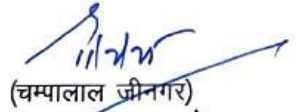 (चम्पालाल जीनगर)